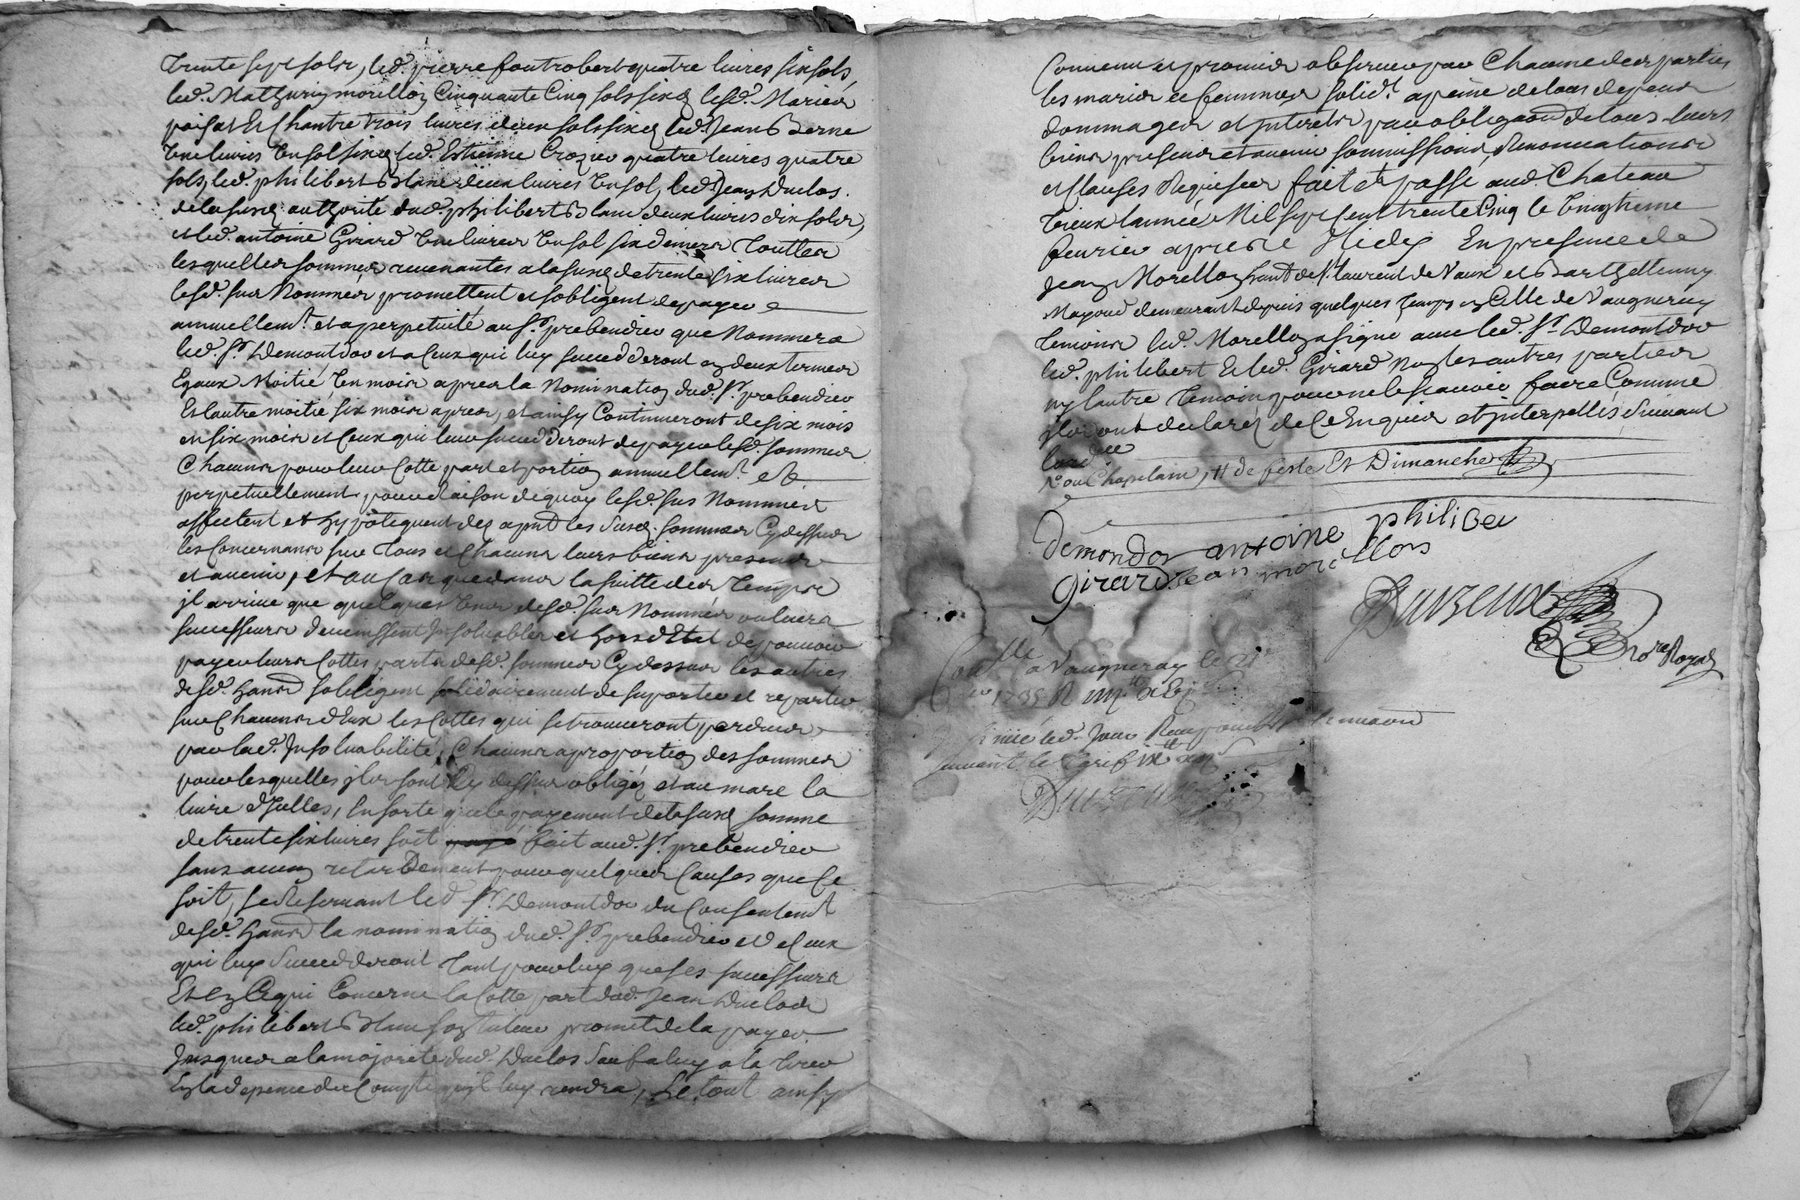 trente sept sols, led. pierre fontrobert quatre livres six sols,
led. Mathurin morillon Cinquante Cinq sols six d. lesd. Maries
poisat Et Chantre trois livres deux sols six d. led. Jean Berne
Une livres Un sol six d. led. Estienne Crozier quatre livres quatre
sols, led. philibert Blanc deux livres Un sol, led. Jean Duclos
de la susd. authorité dud. philibert Blanc deux livres dix sols,
et led. antoine Girard Une livres Un sol six deniers Toutles
lesquelles sommes revenantes a la susd. de trente six livres
lesd. sus Nommés promettent et sobligent de payer
annuellemt. et a perpetuité au sr. prebendier que Nommera
led. sr. Demontdor et a Ceux qui luy succedderont en deux termes
Egaux Moitié Un mois apres la Nomination dud. sr. prebendier
Et lautre moitié six mois apres, et ainsy Continueront de six mois
en six mois et Ceux qui leur succedderont de payer lesd. sommes
Chacuns pour leur Cotte part et portion annuellemt. et
perpetuellement, pour Raison de quoy lesd. sus Nommés
affectent et hypotequent des apnt. les susd. sommes Cy dessus
les Concernans sur tous et Chacuns leurs biens presens
et avenir, et au Cas que dans la suitte des Temps
jl arrive que quelques Uns desd. sus Nommés ou leurs
successeurs devinssent Insoluables et hors d'Etat de pouvoir
payer leurs Cottes parts desd. sommes Cy dessus les autres
desd. hans sobligent solidairement de suporter et repartir
sur Chacuns d'Eux les Cottes qui se trouveront perdues
par lad. Insoluabilité, Chacuns a proportion des sommes
pour lesquelles jls sont Cy dessus obligés et au marc la
livre d'Jcelles, En sorte que le payement de la susd. somme
de trente six livres soit fait aud. sr. prebendier
sans aucun retardement pour quelques Causes que Ce
soit, se Reservant led. sr. Demontdor du Consentemt.
desd. hans la nomination dud. sr. prebendier et de Ceux
qui luy succedderont tant pour luy que ses successeurs
Et En Ce qui Concerne la Cotte part dud. Jean Duclos
led. philibert Blanc son tuteur promet de la payer
Jusques a la majorité dud. Duclos sauf a luy a la tirer
En la depence du Compte qu'jl luy rendra, Le tout ainsy
Convenu et promis observer par Chacune des parties
les maries et femmes solidt. a peine de tous depens
dommages et Interets par obligaon. de tous leurs
biens presens et avenir soumissions, Renonciations
et Clauses Requises fait et passé aud. Chateau
Vieux lannée Mil sept cent trente Cinq le
feurier apres Midy En presence de
Jean Morellon hant. de st. laurent de Vaux et Barthellemy
Mayoud demeurant depuis quelques temps en Celle de Vaugneray
temoins led. Morellon a signe avec led. sr. Demontdor
led. philibert Et led. Girard Non les autres parties
ny lautre temoin pour ne le scavoir faire Comme
jls ont declaré de Ce Enquis et interpellés suivant
lord.ce
R. ou Chapelain, // de feste Et Dimanche
demondor antoine philiber
Girard Jean morellon
Duizeux
no.re Royal
Con.lle a Vaugneray le
1735 R
suivant le
Duizeux